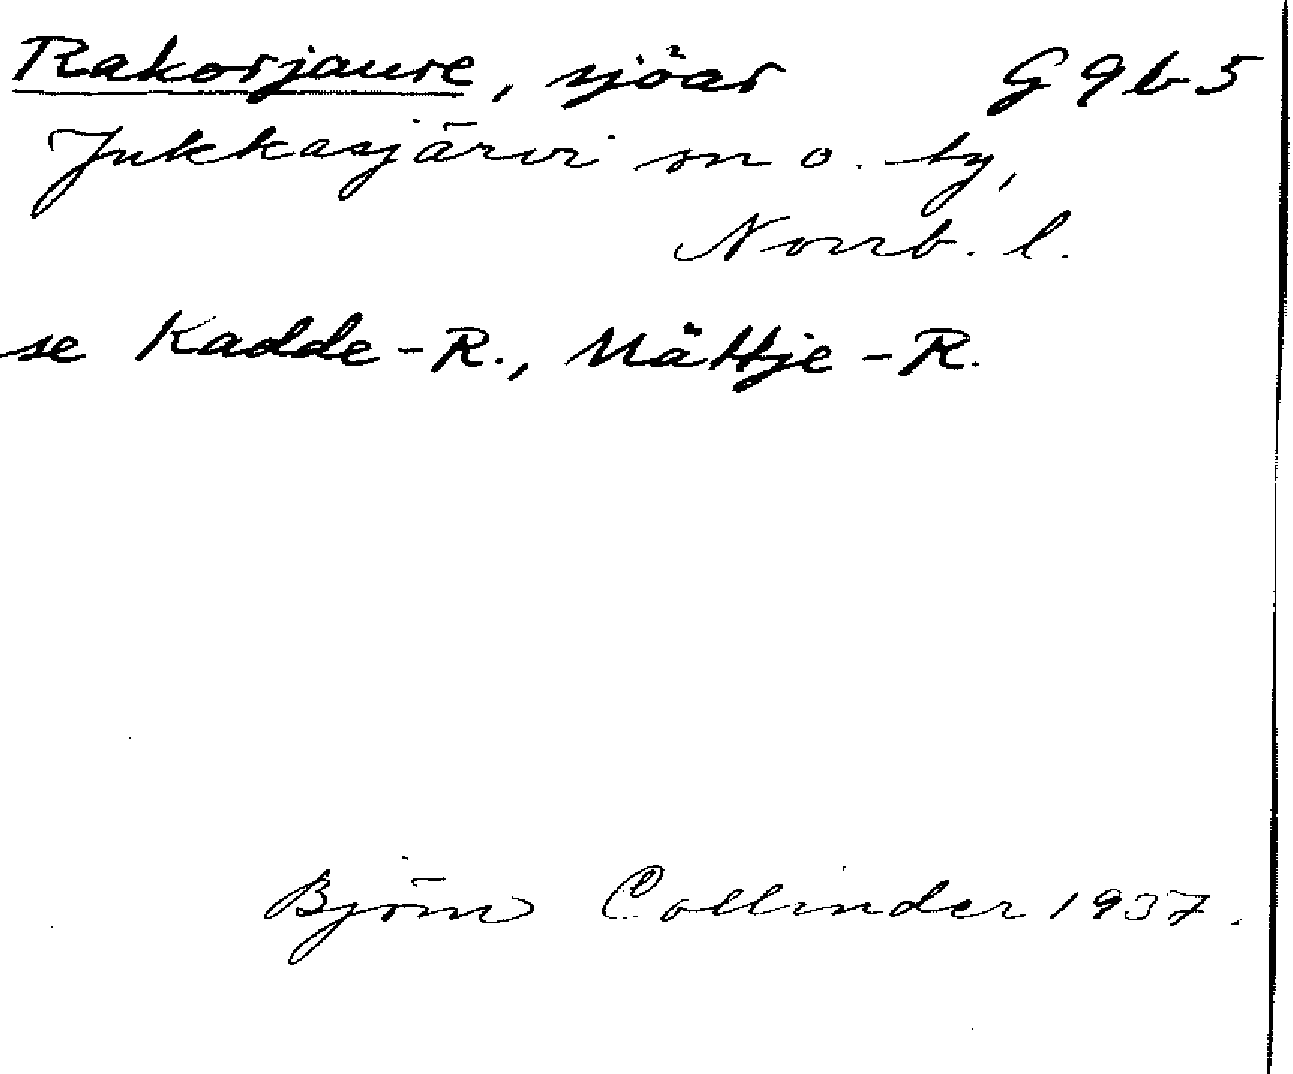 Rakorjaure, sjöar G 9 b 5
Jukkasjärvi sn o. ty,
Norrb. l.
se Kadde-R., Nättje-R.
Björn Collinder 1937.